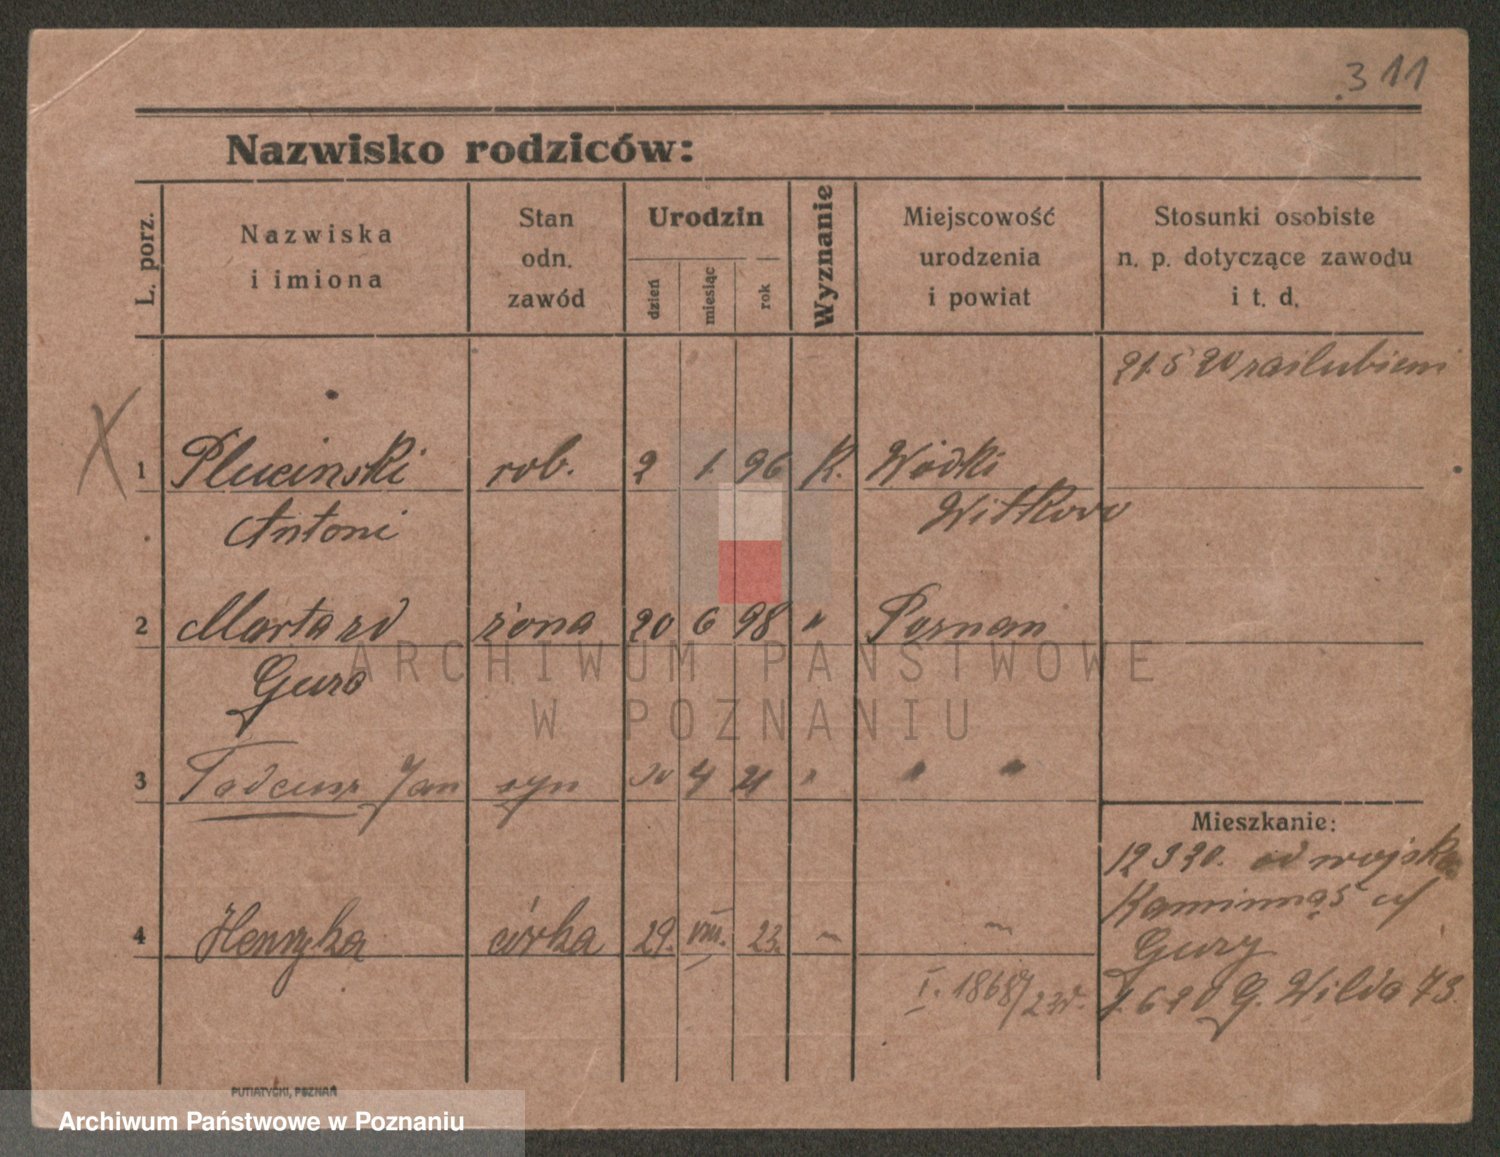 311
Nazwisko rodziców:
L. porz.
Nazwiska
i imiona
Stan
odn.
zawód
Urodzin
dzień
miesiąc
rok
Wyznanie
Miejscowość
urodzenia
i powiat
Stosunki osobiste
n. p. dotyczące zawodu
i t. d.
21.5 20 zaslubieni
X
1 Pluciński rob. 2 1. 96 K. Wódki
Antoni Witkowo
2 Marta zd żona 20 6 98 " Poznan
Gura
3 Tadeusz Jan syn 30 4 21 " " "
Mieszkanie:
12 3 20. od wojska
4 Henryka córka 29. VIII. 23.
Gury
I. 1868/23r.
1.6 20 G. Wilda 73.
PUTIATYCKI, POZNAŃ
ARCHIWUM PAŃSTWOWE
W POZNANIU
Archiwum Państwowe w Poznaniu